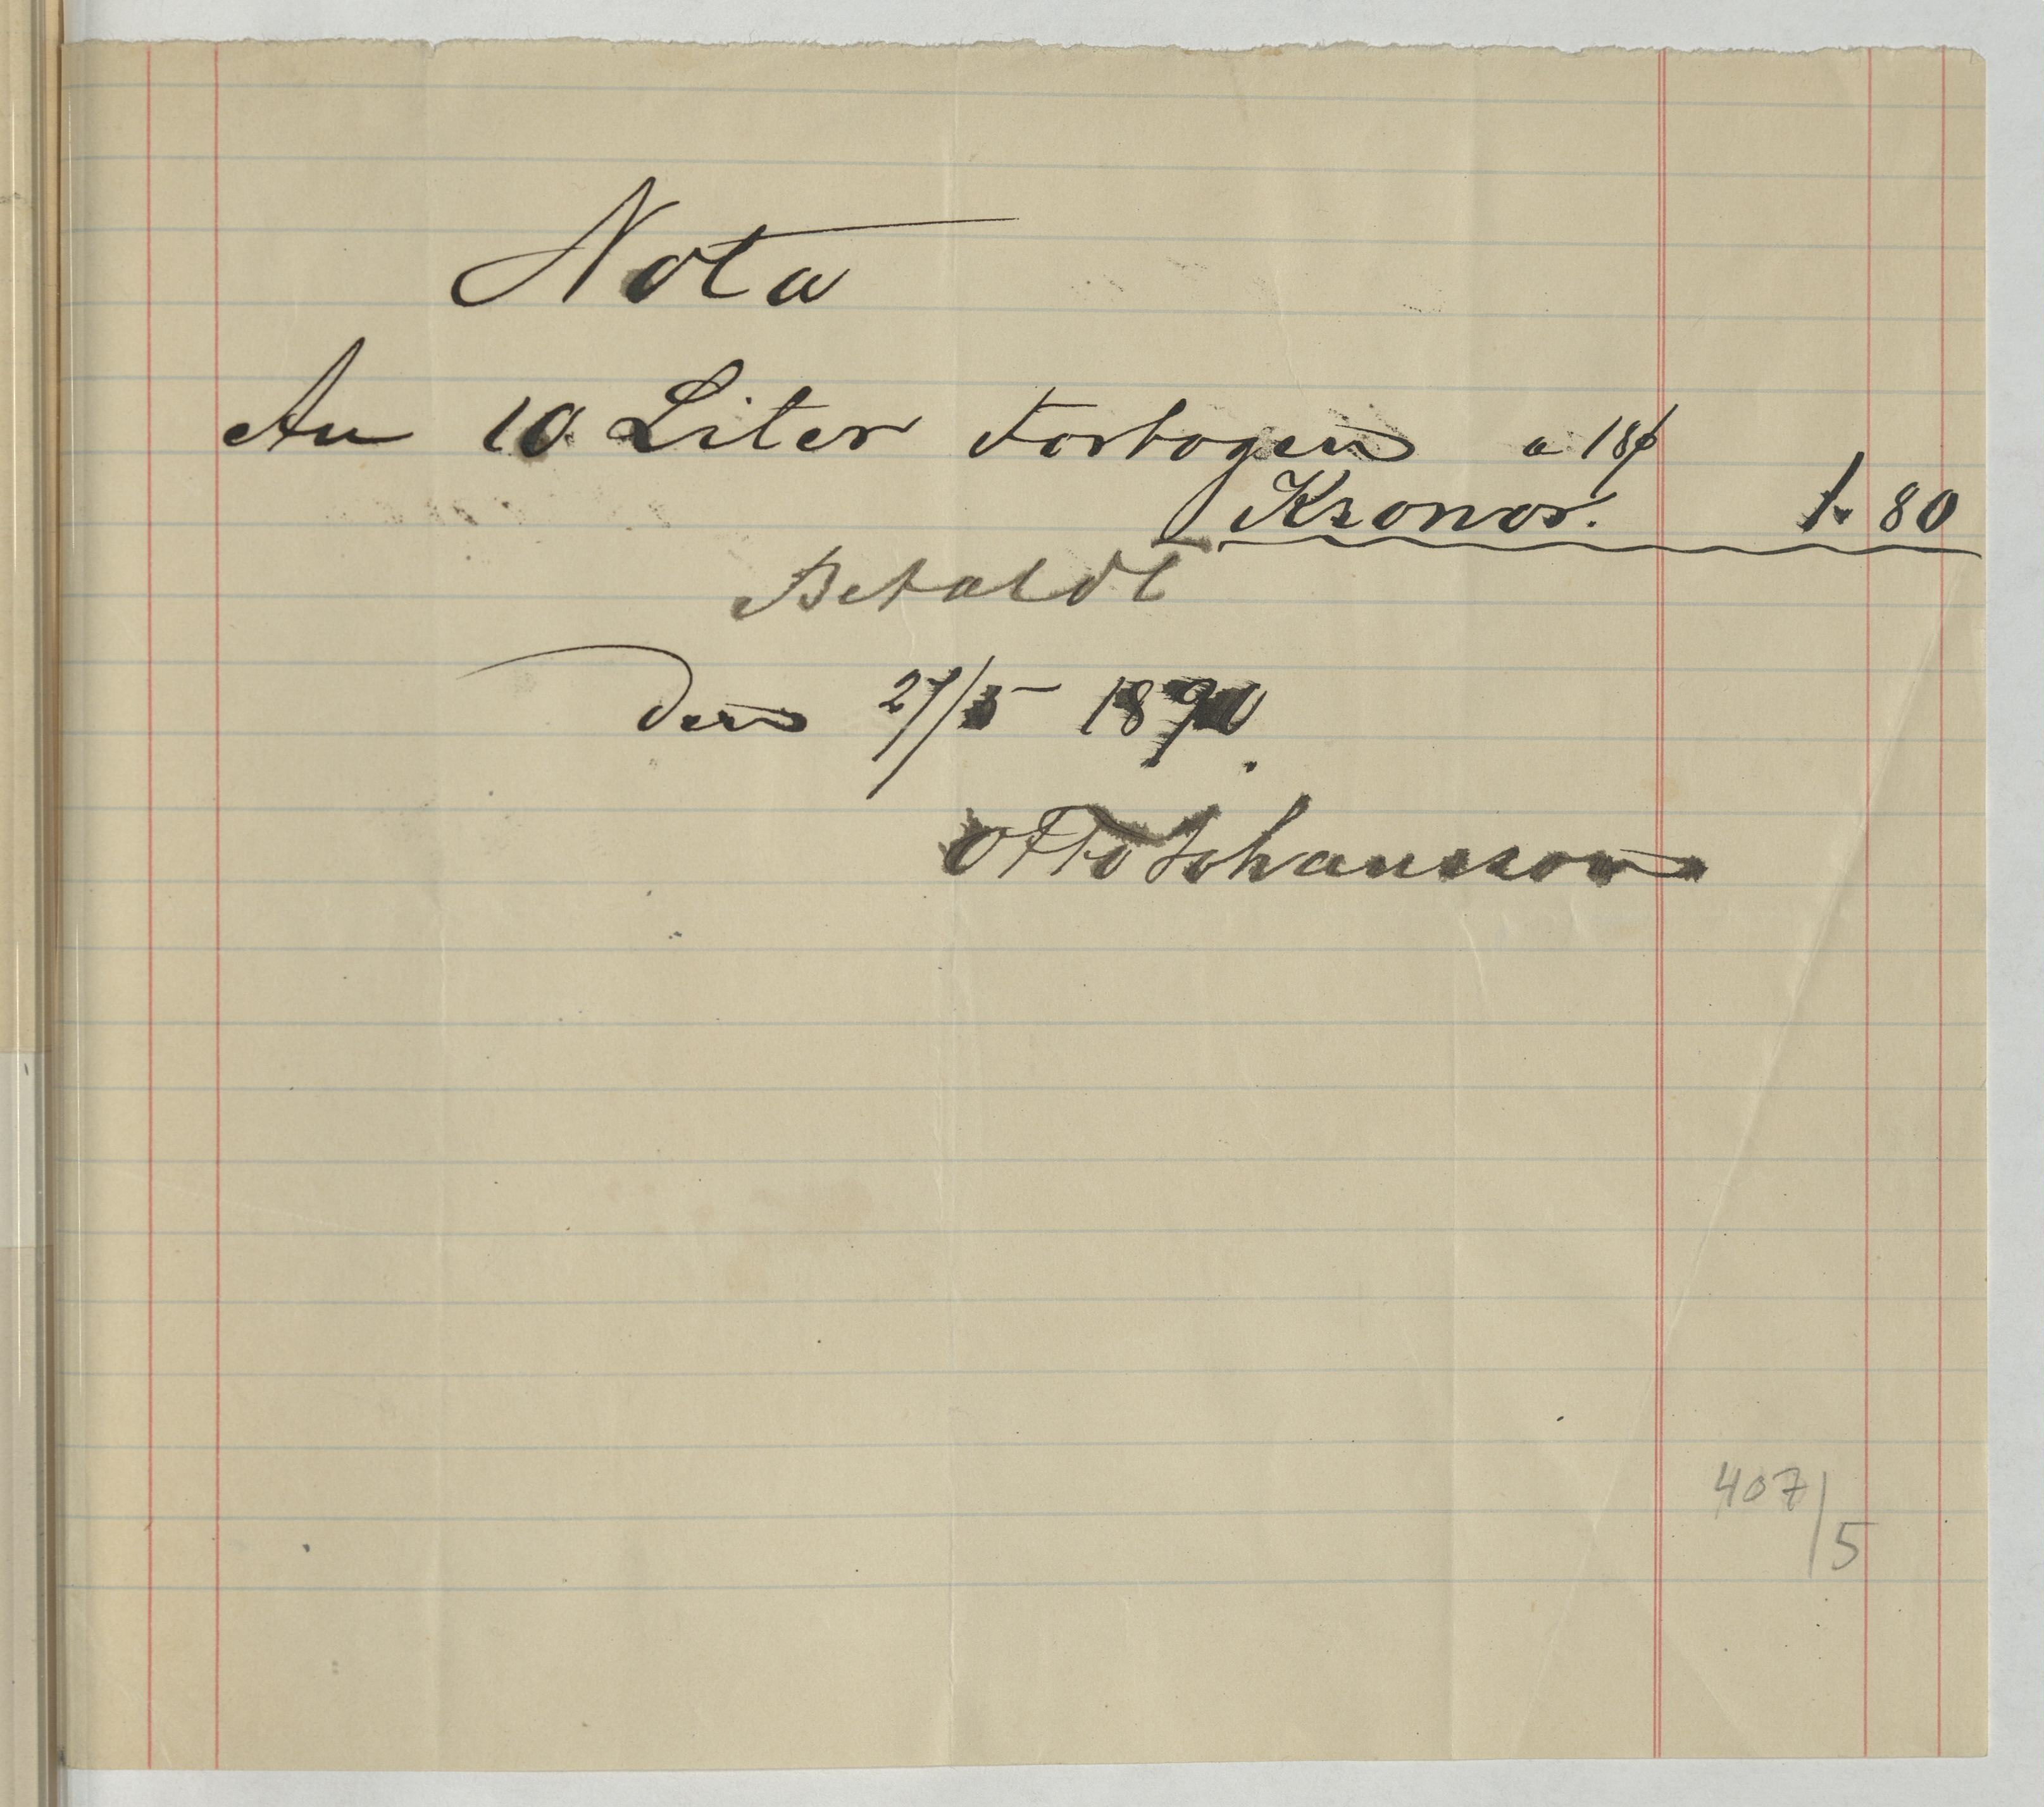 Nota
An 10 Liter Fortogen a 18
Kronor. 1.80
Betaldt
den 27/5 1890.
Otto Johansson
407/5